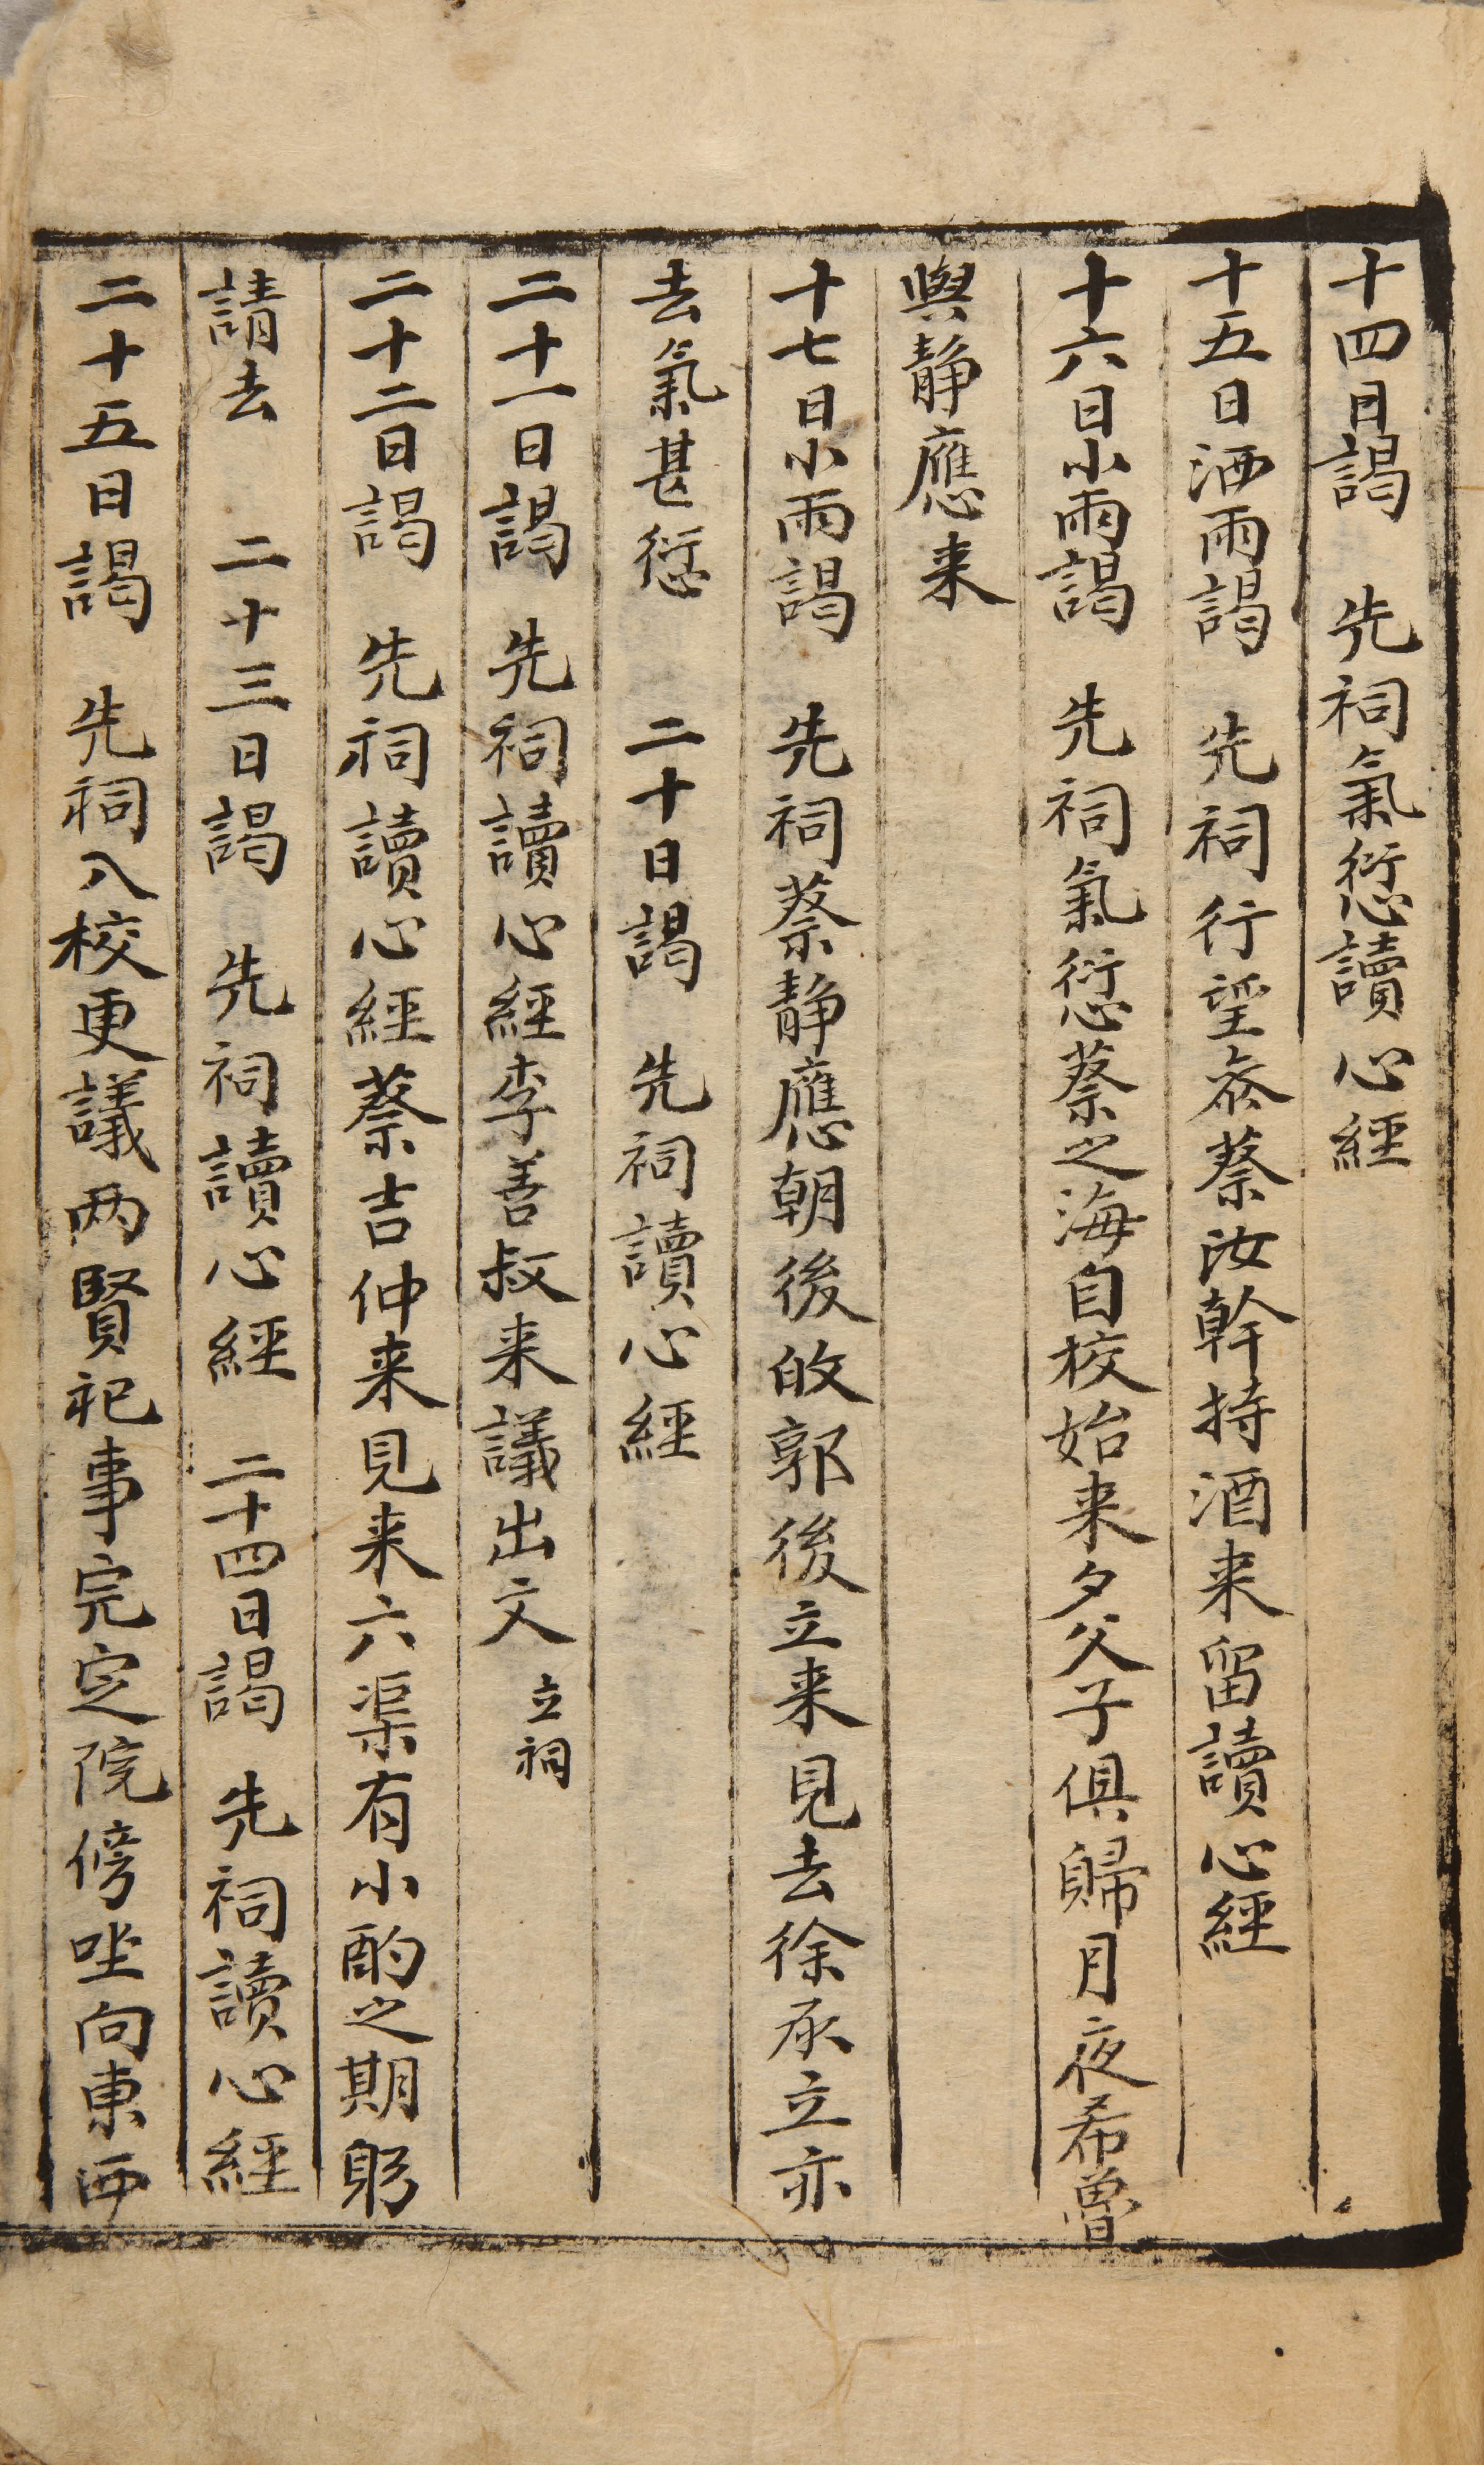 十四日謁　先祠氣愆讀心經
十五日洒雨謁　先祠行望叅蔡汝幹持酒来留讀心經
十六日小雨謁　先祠氣愆蔡之海自校始来夕父子俱歸月夜希魯
與静應来
十七日小雨謁　先祠蔡静應朝後攸郭後立来見去徐承立亦
去氣甚愆　二十日謁　先祠讀心經
二十一日謁　先祠讀心經李善叔来議出文立祠
二十二日謁　先祠讀心經蔡吉仲来見来六渠有小酌之期躬
請去　二十三日謁　先祠讀心經　二十四日謁　先祠讀心經
二十五日謁　先祠入校更議两賢祀事完定院傍坐向東西